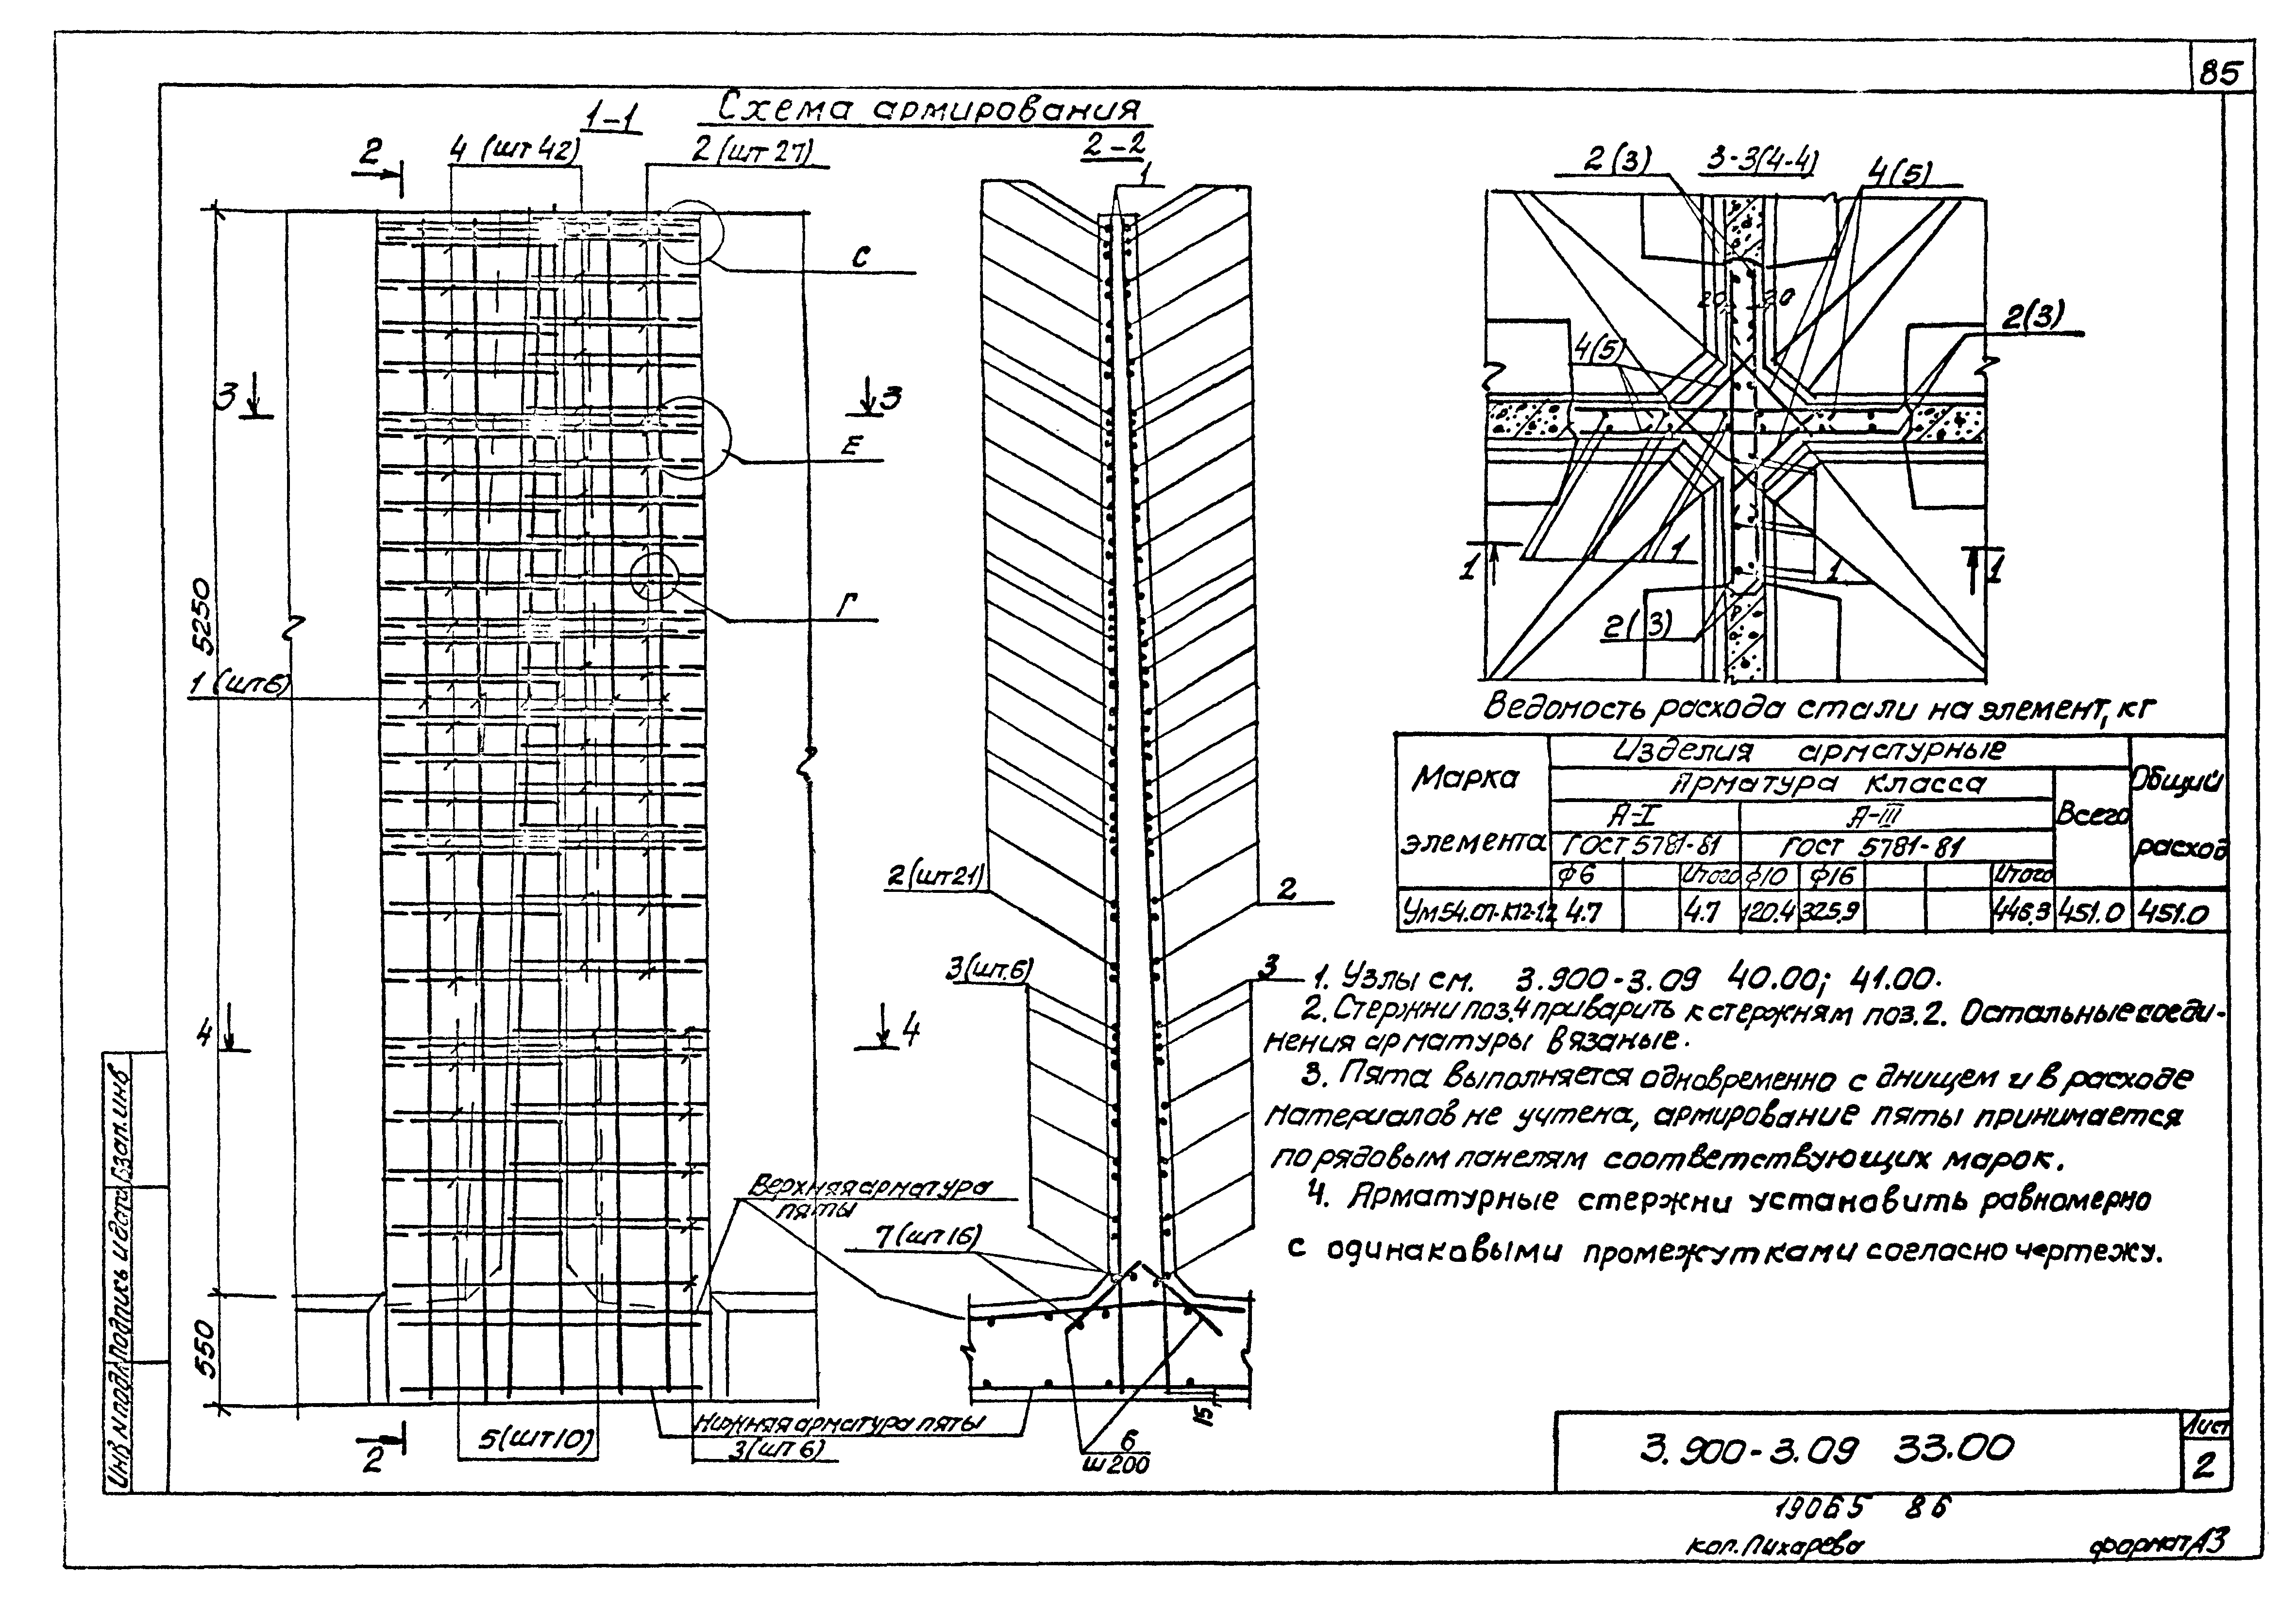 85
Схема армирования
1-1
2-2
3-3(4-4)
2
4 (шт 42)
2 (шт 27)
1
2(3)
4(5)
С
20
20
2(3)
4(5)
3
3
Е
5250
Г
1
1
1
1
2(3)
1 (шт6)
Ведомость расхода стали на элемент, кг
Марка элемента
Изделия арматурные
Арматура класса
Всего
Общий расход
А-I
А-III
ГОСТ 5781-81
ГОСТ 5781-81
ф6
Итого
ф10
ф16
Итого
4.7
4.7
120.4
325.9
446.3
451.0
451.0
2(шт21)
2
3(шт.6)
3
4
4
1. Узлы см. 3.900-3.09 40.00; 41.00.
2. Стержни поз.4 приварить к стержням поз.2. Остальные соеди-
нения арматуры вязаные.
3. Пята выполняется одновременно с днищем и в расходе
материалов не учтена, армирование пяты принимается
по рядовым панелям соответствующих марок.
4. Арматурные стержни установить равномерно
с одинаковыми промежутками согласно чертежу.
Верхняя арматура
пяты
7(шт16)
550
15
Нижняя арматура пяты
2
5(шт10)
3(шт6)
6
ш200
Инв № подл.
Подпись и дата
Взам. инв
3.900-3.09 33.00
Лист
2
19065 86
коп. Пихарева
формат А3